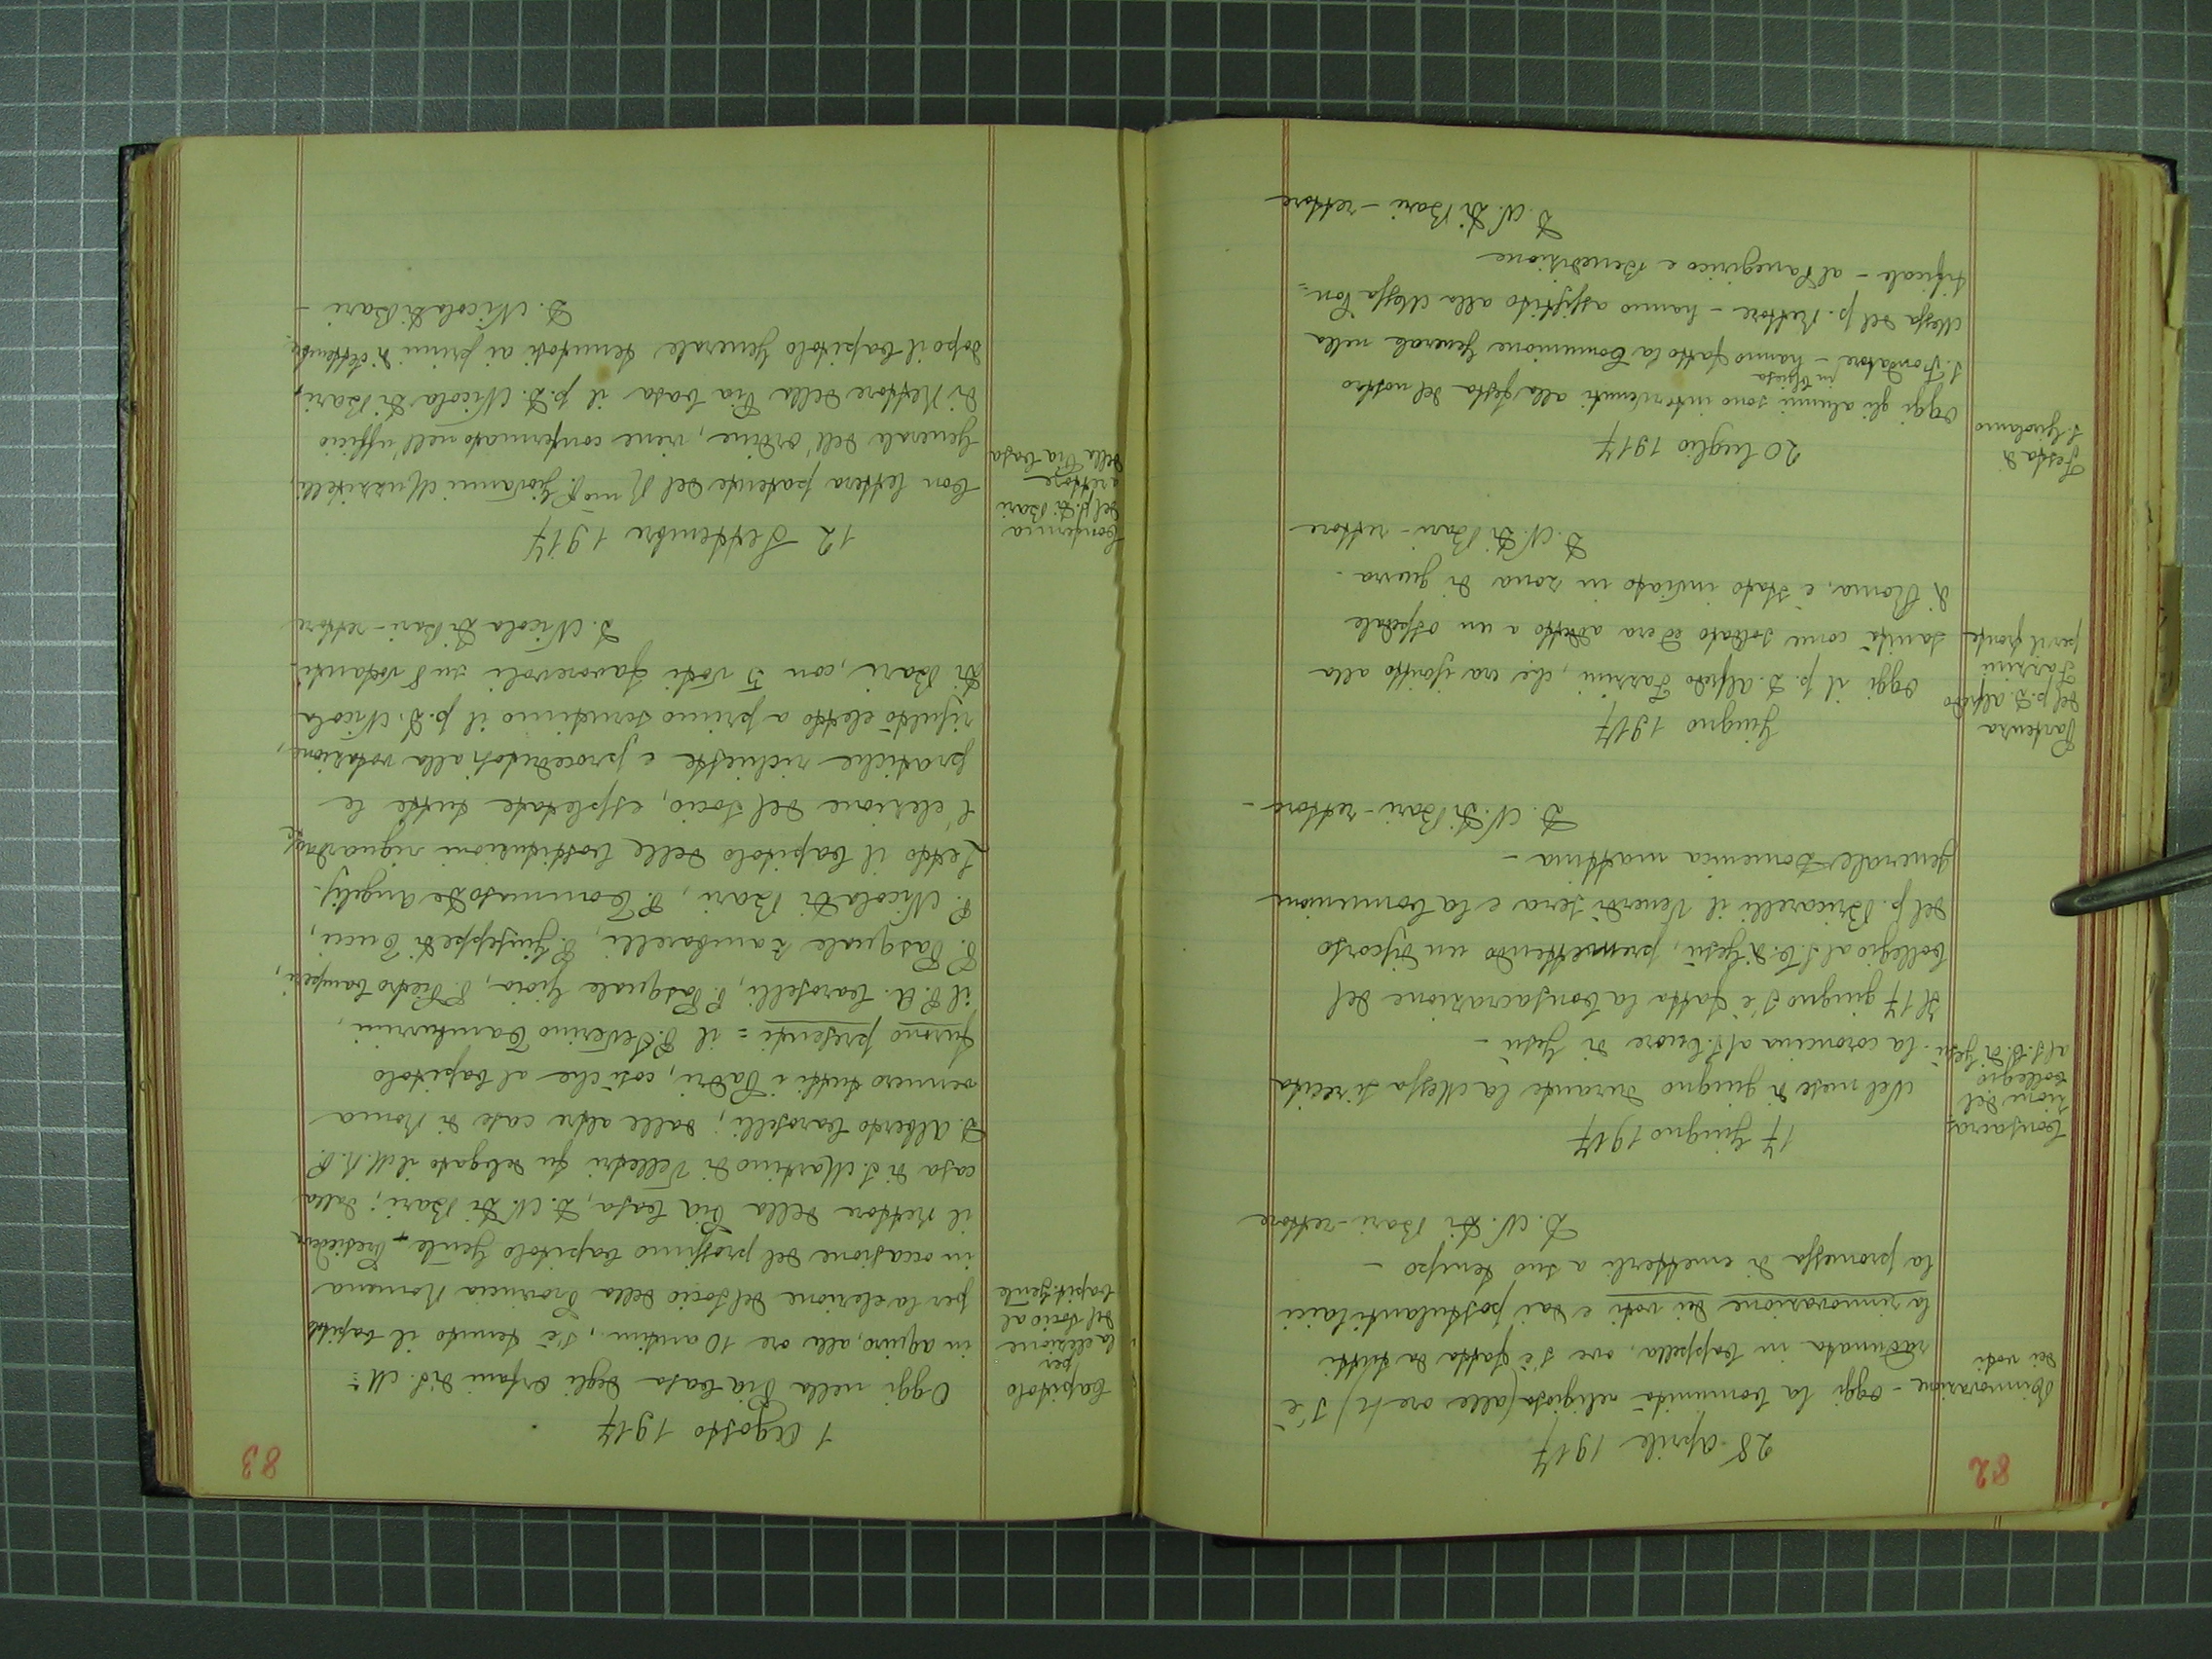 82
28 Aprile 1917
Rinnovazione
dei voti
Oggi la Comunità religiosa (alle ore 12) s'è
radunata in Cappella, ove s'è fatta da tutti
la rinnovazione dei voti e dai postulanti laici
la promessa di emetterli a suo tempo -
D. N. Di Bari - rettore
17 Giugno 1917
Consacra
zione del
Collegio
al S. C. di Gesù
Nel mese di giugno durante la Messa si recita
la coroncina al S. Cuore di Gesù -
Il 17 giugno s'è fatta la Consacrazione del
Collegio al S. C. di Gesù, premettendo un discorso
del p. Bricarelli il Venerdì sera e la Comunione
generale Domenica mattina -
D. N. Di Bari - rettore -
Giugno 1917
Partenza
del p. D. Alfredo
Farrini
per il fronte
Oggi il p. D. Alfredo Farrini, che era iscritto alla
sanità come soldato ed era addetto a un ospedale
di Roma, è stato inviato in zona di guerra -
D. N. Di Bari - rettore
20 Luglio 1917
Festa di
S. Girolamo
Oggi gli alunni sono intervenuti alla festa del nostro
in Chiesa
S. Fondatore - hanno fatto la Comunione Generale nella
Messa del p. Rettore - hanno assistito alla Messa Pon=
tificale - al Panegirico e Benedizione
D. N. Di Bari - rettore
83
1 Agosto 1917
Capitolo
per
la elezione
del Socio al
Capit. Gen.le
Oggi nella Pia Casa degli Orfani di S. M=
in Aquiro, alle ore 10 antim., s'è tenuto il Capitolo
per la elezione del Socio della Provincia Romana
in occasione del prossimo Capitolo Gen.le - Presiedeva
il Rettore della Pia Casa, D. N. Di Bari; dalla
casa di S. Martino di Velletri fu delegato il M. R. P.
D. Alberto Caroselli; dalle altre case di Roma
vennero tutti i Padri, così che al Capitolo
furono presenti = il P. Severino Tamburrini,
il P. A. Caroselli, P. Pasquale Gioia, P. Pietro Camperi,
P. Pasquale Zambarelli, P. Giuseppe Di Tucci,
P. Nicola Di Bari, P. Tommaso De Angelis.
Letto il Capitolo delle Costituzioni riguardante
l'elezione del Socio, espletate tutte le
pratiche richieste e procedutosi alla votazione,
risultò eletto a primo scrutinio il p. D. Nicola
Di Bari, con 5 voti favorevoli su 8 votanti.
D. Nicola Di Bari - rettore
12 Settembre 1917
Conferma
del p. Di Bari
a rettore
della Pia Casa
Con lettera patente del R.mo P. Giovanni Muzzitelli,
Generale dell'Ordine, viene confermato nell'ufficio
di Rettore della Pia Casa il p. D. Nicola Di Bari,
dopo il Capitolo Generale tenutosi ai primi di Settembre.
D. Nicola Di Bari -